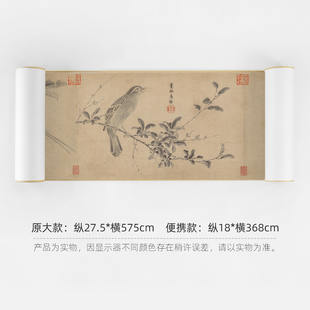 原大款：纵27.5*横575cm　便携款：纵18*横368cm
产品为实物，因显示器不同颜色存在稍许误差，请以实物为准。